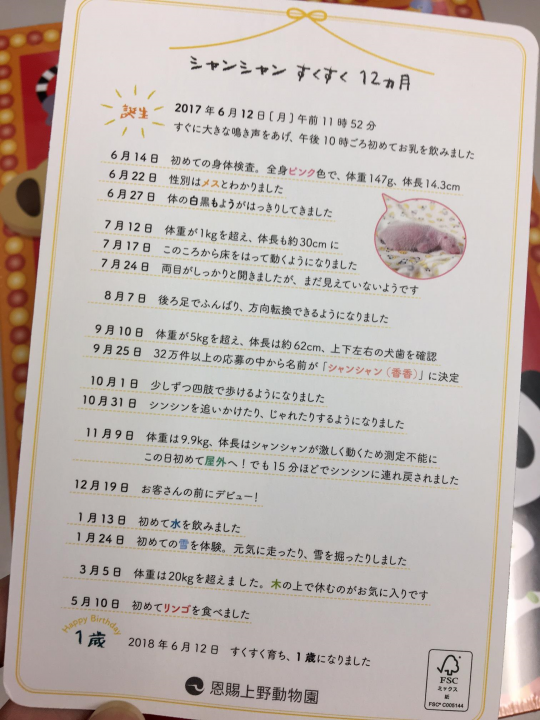 シャンシャン すくすく 12ヵ月
誕生
2017年6月12日〔月〕午前11時52分
すぐに大きな鳴き声をあげ、午後10時ごろ初めてお乳を飲みました
6月14日 初めての身体検査。全身ピンク色で、体重147g、体長14.3cm
6月22日 性別はメスとわかりました
6月27日 体の白黒もようがはっきりしてきました
7月12日 体重が1kgを超え、体長も約30cmに
7月17日 このころから床をはって動くようになりました
7月24日 両目がしっかりと開きましたが、まだ見えていないようです
8月7日 後ろ足でふんばり、方向転換できるようになりました
9月10日 体重が5kgを超え、体長は約62cm、上下左右の犬歯を確認
9月25日 32万件以上の応募の中から名前が「シャンシャン(香香)」に決定
10月1日 少しずつ四肢で歩けるようになりました
10月31日 シンシンを追いかけたり、じゃれたりするようになりました
11月9日 体重は9.9kg、体長はシャンシャンが激しく動くため測定不能に
この日初めて屋外へ!でも15分ほどでシンシンに連れ戻されました
12月19日 お客さんの前にデビュー!
1月13日 初めて水を飲みました
1月24日 初めての雪を体験。元気に走ったり、雪を掘ったりしました
3月5日 体重は20kgを超えました。木の上で休むのがお気に入りです
5月10日 初めてリンゴを食べました
Happy Birthday
1歳
2018年6月12日 すくすく育ち、1歳になりました
恩賜上野動物園
FSC
ミックス
紙
FSC® C005144